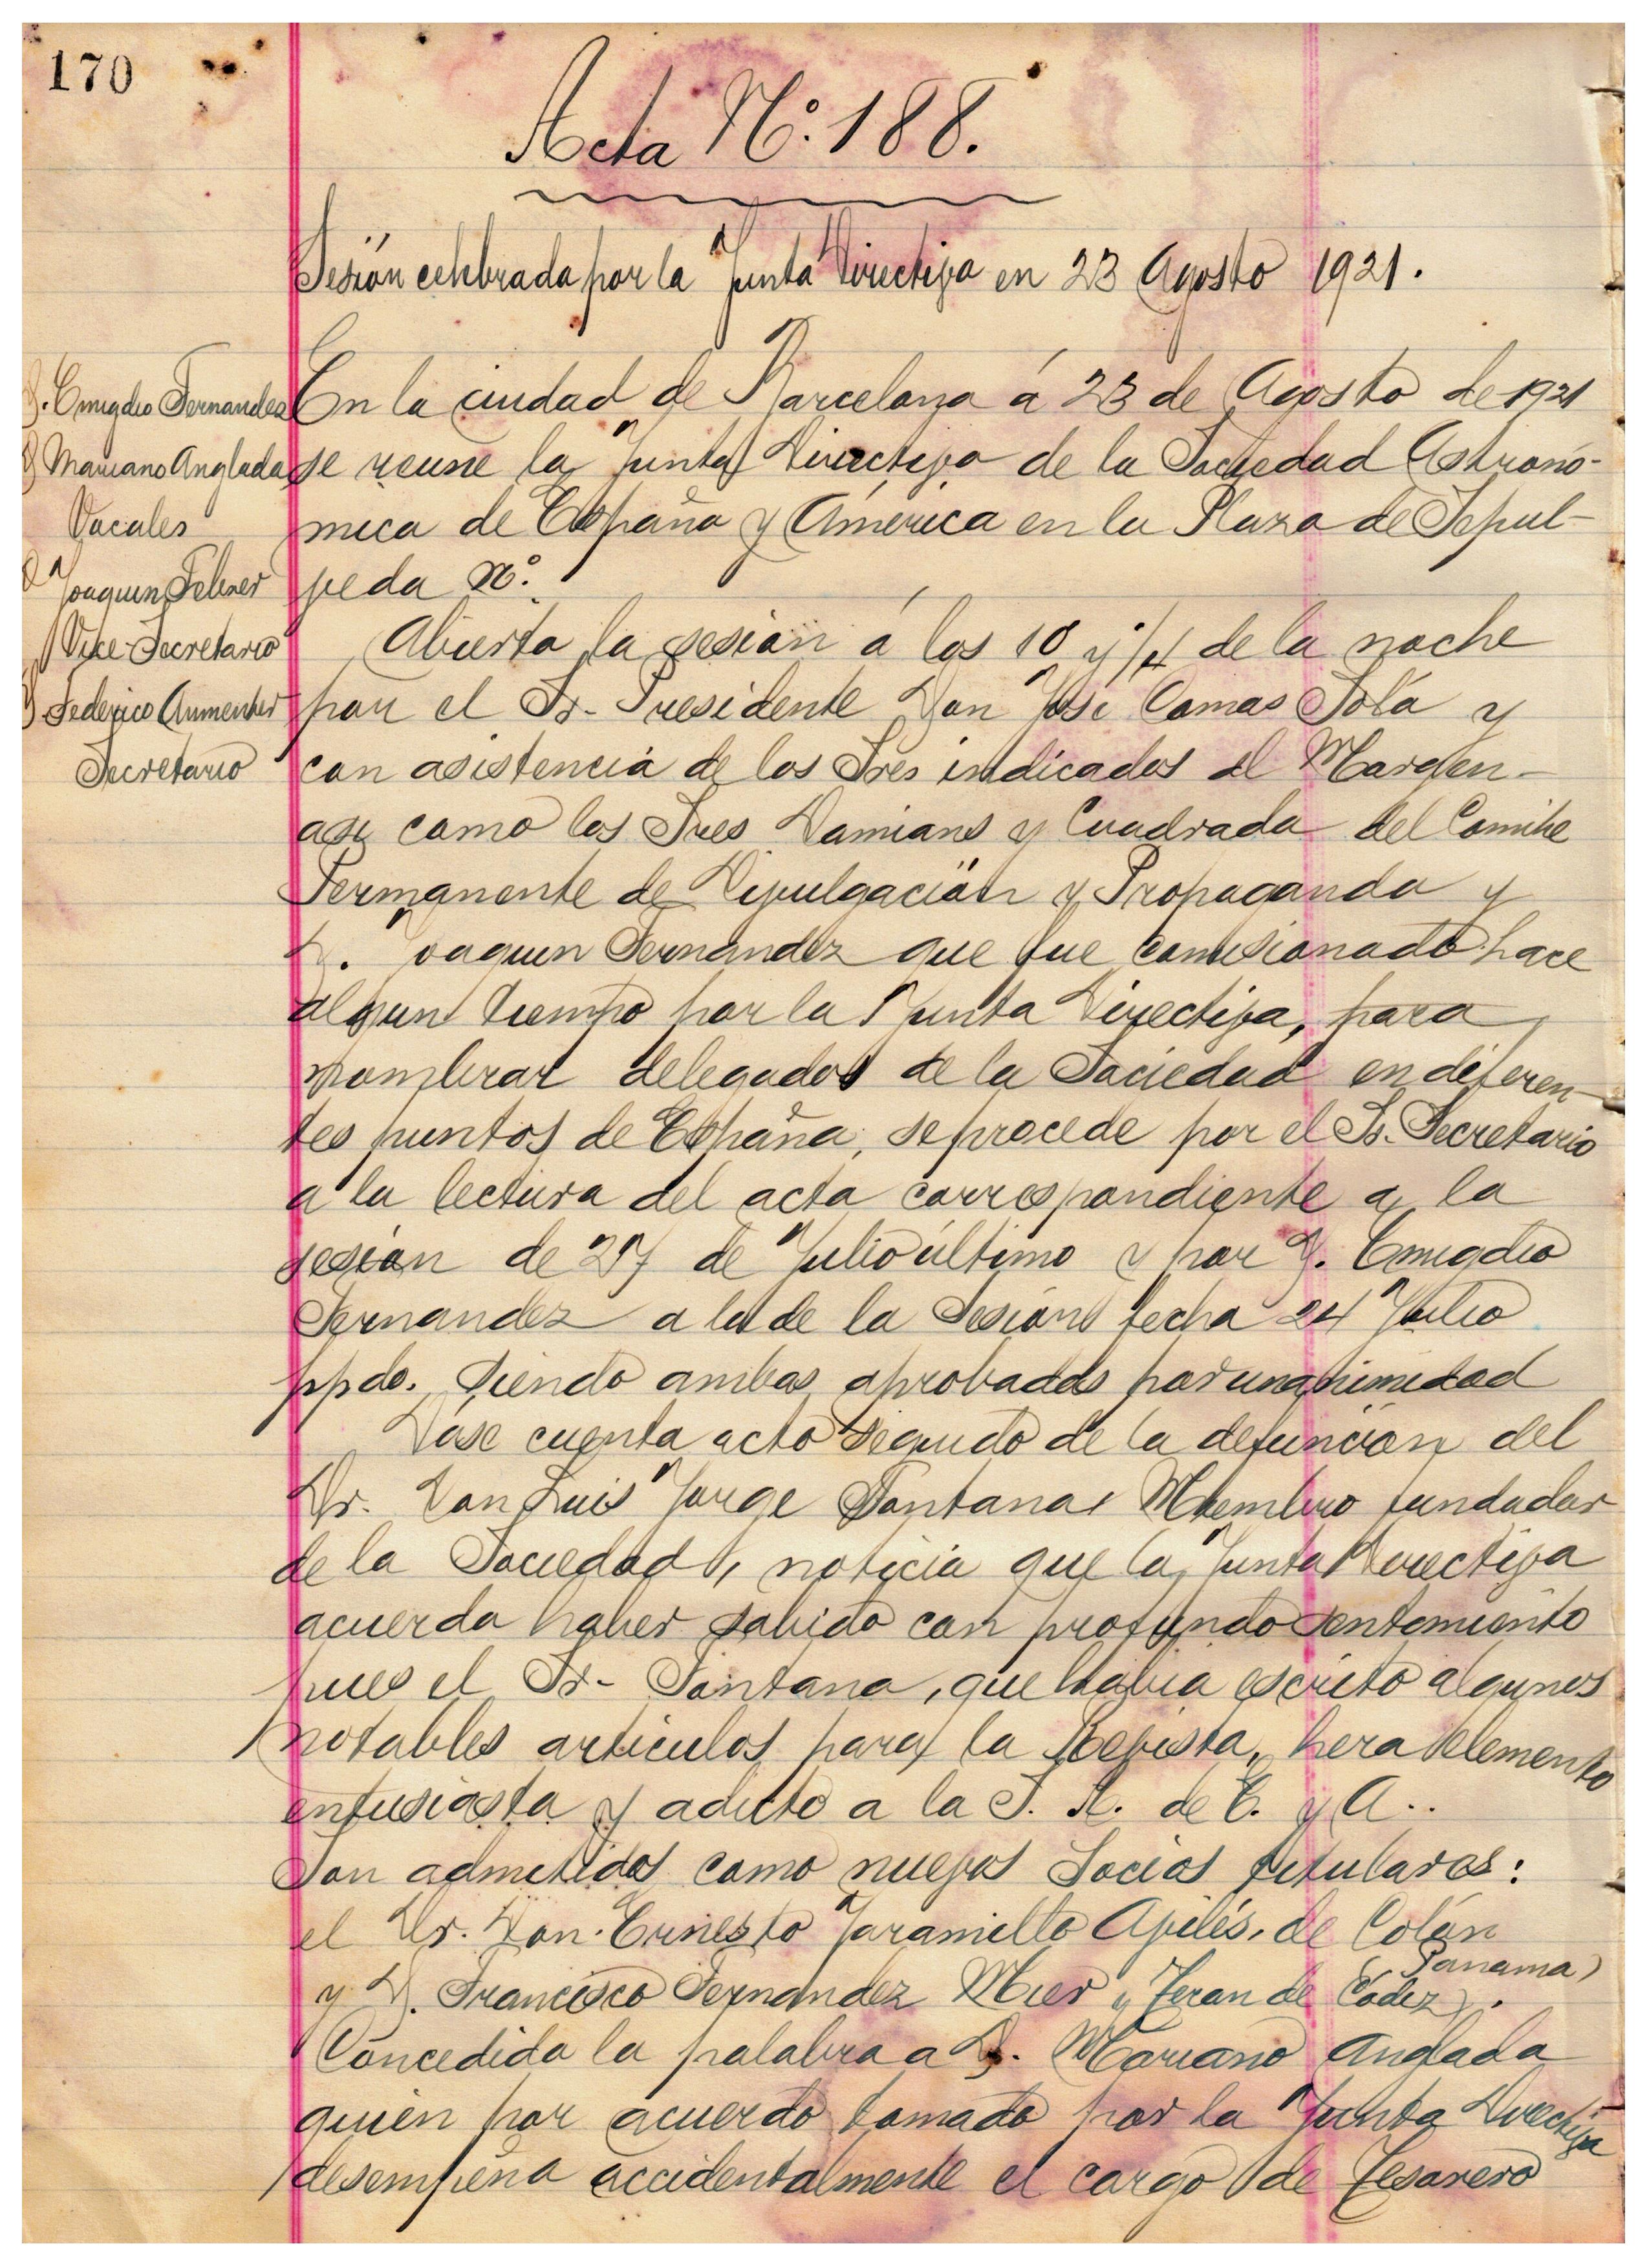 170
Acta Nº. 188.
Sesión celebrada por la Junta Directiva en 23 Agosto 1921.
D. Emigdio Fernandez
D Mariano Anglada
Vocales
D Joaquin Febrer
Vice-Secretario
D. Federico Armenter
Secretario
En la ciudad de Barcelona á 23 de Agosto de 1921
se reune la Junta Directiva de la Sociedad Astronó-
mica de España y América en la Plaza de Sepul-
veda Nº.
Abierta la sesión á las 10 y 1/4 de la noche
por el Sr. Presidente Don José Comas Solá y
con asistencia de los Sres indicados al Margen-
asi como los Sres Damians y Cuadrada del Comite
Permanente de Divulgación y Propaganda y
D. Joaquin Fernandez que fue comisionado hace
algun tiempo por la Junta Directiva, para
nombrar delegados de la Sociedad en diferen-
tes puntos de España, se procede por el Sr. Secretario
a la lectura del acta correspondiente a la
sesión de 27 de Julio último y por D. Emigdio
Fernandez a la de la Sesión fecha 24 Julio
ppdo. siendo ambas aprobadas por unanimidad
Dase cuenta acto seguido de la defunción del
Dr. Don Luis Jorge Fontana Miembro fundador
de la Sociedad, noticia que la Junta Directiva
acuerda haber sabido con profundo sentimiento
pues el Sr- Fontana, que habia escrito algunos
notables articulos para la Revista, hera elemento
entusiasta y adicto a la S. A. de E. y A..
Son admitidos como nuevos Socios titulares:
el Dr. Don. Ernesto Jaramillo Avilés, de Colón
(Panama)
y D. Francisco Fernandez Mier y Teran de Cadiz).
Concedida la palabra a D. Mariano Anglada
quien por acuerdo tomado por la Junta Directiva
desempeña accidentalmente el cargo de Tesorero